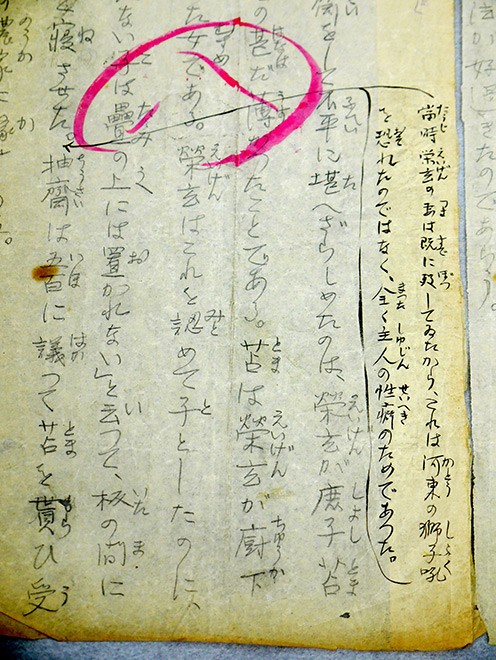 當時榮玄の妻は既に歿してゐたから、これは河東の獅子吼
を恐れたのではなく、全く主人の性癖のためであつた。
をして不平に堪へざらしめたのは、榮玄が庶子苫
の甚だ薄かつたことである。苫は榮玄が厨下
た女である。榮玄はこれを認めて子としたのに、
ない子は疊の上には置かれない」と云つて、板の間に
寢させた。抽齋は五百に議つて苫を貰ひ受
農家に